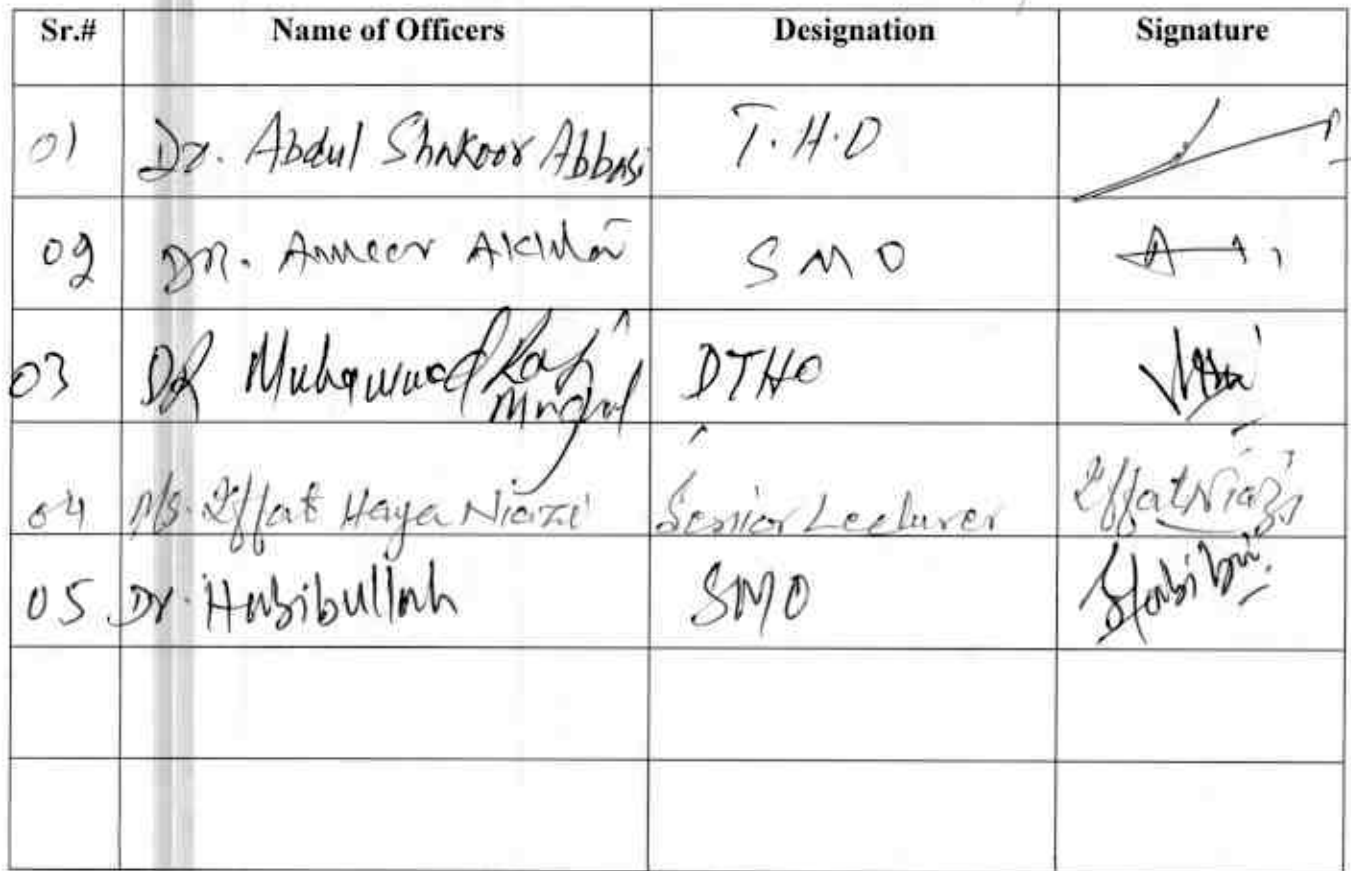 Sr.# Name of Officers Designation Signature
01 Dr. Abdul Shakoor Abbasi T.H.O
02 DR. Ameer Akhtar SMO
03 DR Muhammad Rafi Mughal DTHO
04 Ms. Effat Haya Niazi Senior Lecturer Effat Niazi
05 Dr. Habibullah SMO Habibu